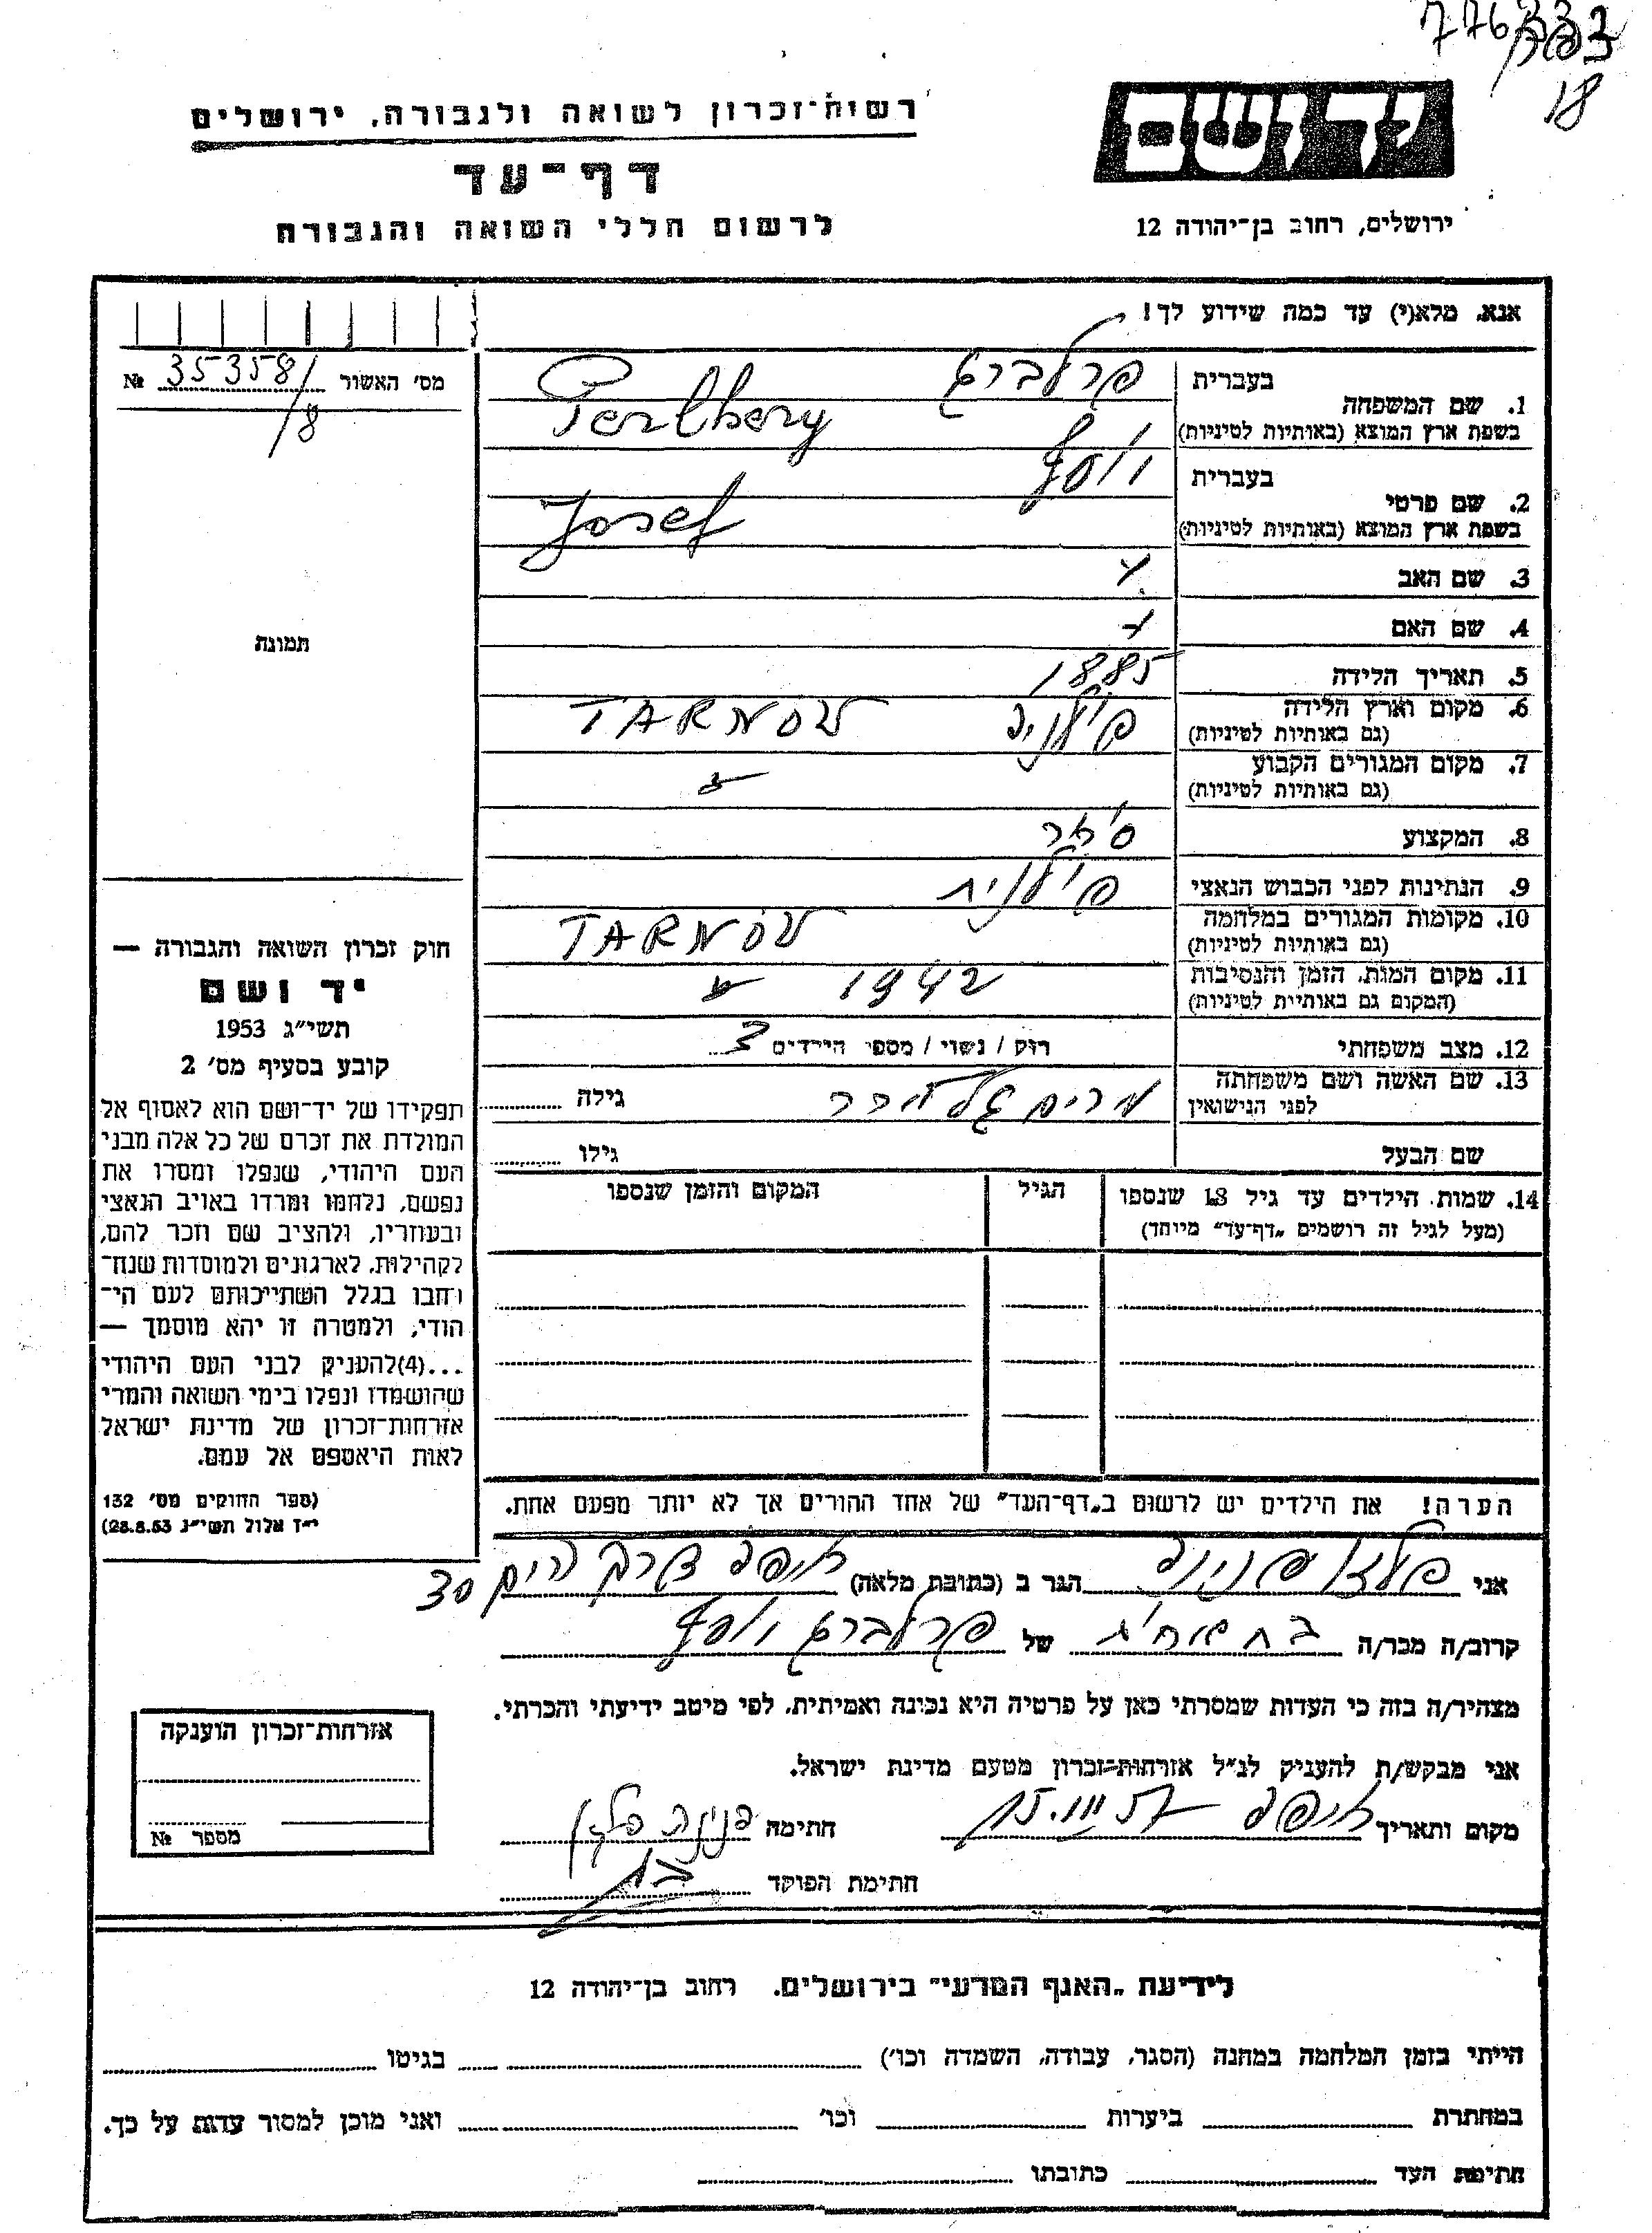 776332
18
רשות־זכרון לשואה ולגבורה, ירושלים
דף־עד
לרשום חללי השואה והגבורה
יד ושם
ירושלים, רחוב בן־יהודה 12
אנא, מלא(י) עד כמה שידוע לך!
מס׳ האשור № 35358/
/8
תמונה
בעברית פרלברג
1. שם המשפחה
בשפת ארץ המוצא (באותיות לטיניות) Perlberg
בעברית יוסף
2. שם פרטי
בשפת ארץ המוצא (באותיות לטיניות) Josef
3. שם האב
4. שם האם
5. תאריך הלידה 1885
6. מקום וארץ הלידה פולניה TARNÓW
(גם באותיות לטיניות)
7. מקום המגורים הקבוע
(גם באותיות לטיניות)
8. המקצוע
9. הנתינות לפני הכבוש הנאצי פולנית
10. מקומות המגורים במלחמה TARNÓW
(גם באותיות לטיניות)
11. מקום המות, הזמן והנסיבות 1942
(המקום גם באותיות לטיניות)
12. מצב משפחתי רווק / נשוי / מספר הילדים 3
13. שם האשה ושם משפחתה מרים גילה
לפני הנישואין
שם הבעל גילו
14. שמות הילדים עד גיל 18 שנספו הגיל המקום והזמן שנספו
(מעל לגיל זה רושמים „דף־עד" מיוחד)
הערה! את הילדים יש לרשום ב„דף־העד" של אחד ההורים אך לא יותר מפעם אחת.
חוק זכרון השואה והגבורה —
יד ושם
תשי״ג 1953
קובע בסעיף מס׳ 2
תפקידו של יד־ושם הוא לאסוף אל
המולדת את זכרם של כל אלה מבני
העם היהודי, שנפלו ומסרו את
נפשם, נלחמו ומרדו באויב הנאצי
ובעוזריו, ולהציב שם וזכר להם,
לקהילות, לארגונים ולמוסדות שנח־
רבו בגלל השתייכותם לעם הי־
הודי, ולמטרה זו יהא מוסמך —
...(4)להעניק לבני העם היהודי
שהושמדו ונפלו בימי השואה והמרי
אזרחות־זכרון של מדינת ישראל
לאות היאספם אל עמם.
(ספר החוקים מס׳ 132
י״ז אלול תשי״ג 28.8.53)
אני פלזן פנינה הגר ב (כתובת מלאה) חיפה דרך הים 30
קרוב/ה מכר/ה של פרלברג יוסף
מצהיר/ה בזה כי העדות שמסרתי כאן על פרטיה היא נכונה ואמיתית, לפי מיטב ידיעתי והכרתי.
אני מבקש/ת להעניק לנ״ל אזרחות־זכרון מטעם מדינת ישראל.
מקום ותאריך חיפה 15.III.57 חתימה פנינה פלזן
חתימת הפוקד
אזרחות־זכרון הוענקה
מספר №
לידיעת „האגף המדעי" בירושלים. רחוב בן־יהודה 12
הייתי בזמן המלחמה במחנה (הסגר, עבודה, השמדה וכו׳) בגיטו
במחתרת ביערות וכו׳ ואני מוכן למסור עדות על כך.
חתימת העד כתובתו